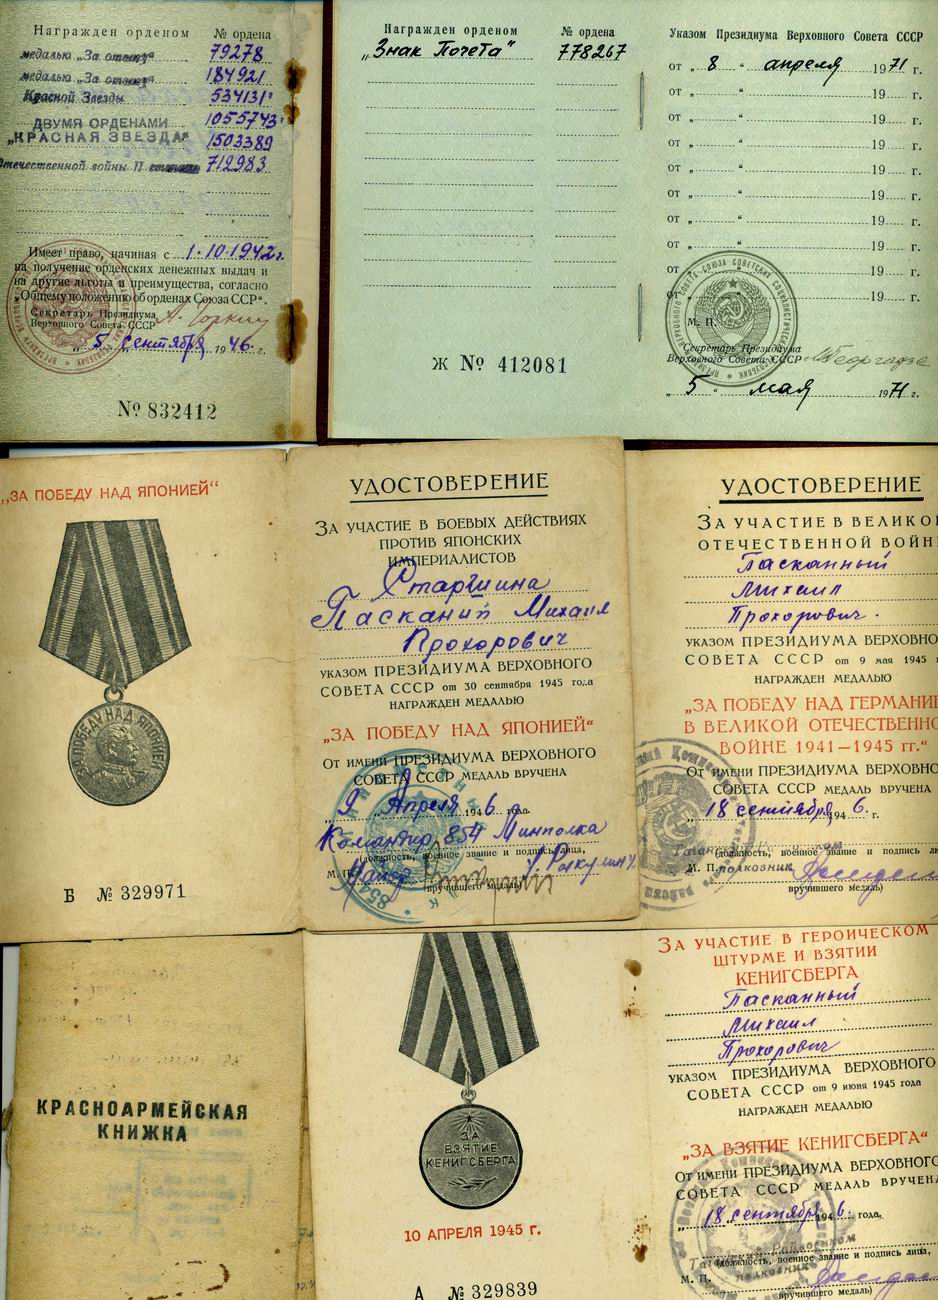 Награжден орденом № ордена
медалью „За отвагу" 79278
медалью „За отвагу" 184921
Красной Звезды 534131
ДВУМЯ ОРДЕНАМИ 1055743
„КРАСНАЯ ЗВЕЗДА" 1503389
Отечественной войны II степени 712983
Имеет право, начиная с 1·10·1942 г.
на получение орденских денежных выдач и
на другие льготы и преимущества, согласно
„Общему положению об орденах Союза ССР".
Секретарь Президиума
Верховного Совета СССР
А. Горкин
„5" сентября 1946 г.
№ 832412
Награжден орденом № ордена
„Знак Почета" 778267
Ж № 412081
Указом Президиума Верховного Совета СССР
от „8" апреля 1971 г.
от „ " 19 г.
от „ " 19 г.
от „ " 19 г.
от „ " 19 г.
от „ " 19 г.
от „ " 19 г.
от „ " 19 г.
от „ " 19 г.
от „ " 19 г.
М. П.
Секретарь Президиума
Верховного Совета СССР
М. Георгадзе
„5" мая 1971 г.
„ЗА ПОБЕДУ НАД ЯПОНИЕЙ"
ЗА ПОБЕДУ НАД ЯПОНИЕЙ
Б № 329971
УДОСТОВЕРЕНИЕ
ЗА УЧАСТИЕ В БОЕВЫХ ДЕЙСТВИЯХ
ПРОТИВ ЯПОНСКИХ
ИМПЕРИАЛИСТОВ
Старшина
Пасканий Михаил
Прохорович
УКАЗОМ ПРЕЗИДИУМА ВЕРХОВНОГО
СОВЕТА СССР от 30 сентября 1945 года
НАГРАЖДЕН МЕДАЛЬЮ
„ЗА ПОБЕДУ НАД ЯПОНИЕЙ"
ОТ ИМЕНИ ПРЕЗИДИУМА ВЕРХОВНОГО
СОВЕТА СССР МЕДАЛЬ ВРУЧЕНА
„9" Апреля 1946 года.
Командир 854 Минполка
(должность, военное звание и подпись лица,
М. П. Майор
вручившего медаль)
УДОСТОВЕРЕНИЕ
ЗА УЧАСТИЕ В ВЕЛИКОЙ
ОТЕЧЕСТВЕННОЙ ВОЙНЕ
Пасканный
Михаил
Прохорович.
УКАЗОМ ПРЕЗИДИУМА ВЕРХОВНО
СОВЕТА СССР от 9 мая 1945 г
НАГРАЖДЕН МЕДАЛЬЮ
„ЗА ПОБЕДУ НАД ГЕРМАНИЕ
В ВЕЛИКОЙ ОТЕЧЕСТВЕННО
ВОЙНЕ 1941—1945 гг."
ОТ ИМЕНИ ПРЕЗИДИУМА ВЕРХОВНО
СОВЕТА СССР МЕДАЛЬ ВРУЧЕНА
„18 сентября 1946. г.
(должность, военное звание и подпись ли
М. П. подковник
вручившего медаль)
КРАСНОАРМЕЙСКАЯ
КНИЖКА
ЗА
ВЗЯТИЕ
КЕНИГСБЕРГА
10 АПРЕЛЯ 1945 г.
А № 329839
ЗА УЧАСТИЕ В ГЕРОИЧЕСКОМ
ШТУРМЕ И ВЗЯТИИ
КЕНИГСБЕРГА
Пасканный
Михаил
Прохорович
УКАЗОМ ПРЕЗИДИУМА ВЕРХОВНОГО
СОВЕТА СССР от 9 июня 1945 года
НАГРАЖДЕН МЕДАЛЬЮ
„ЗА ВЗЯТИЕ КЕНИГСБЕРГА"
ОТ ИМЕНИ ПРЕЗИДИУМА ВЕРХОВНОГО
СОВЕТА СССР МЕДАЛЬ ВРУЧЕНА
„18 сентября 1946. года.
(должность, военное звание и подпись лица,
М. П. полковник
вручившего медаль)